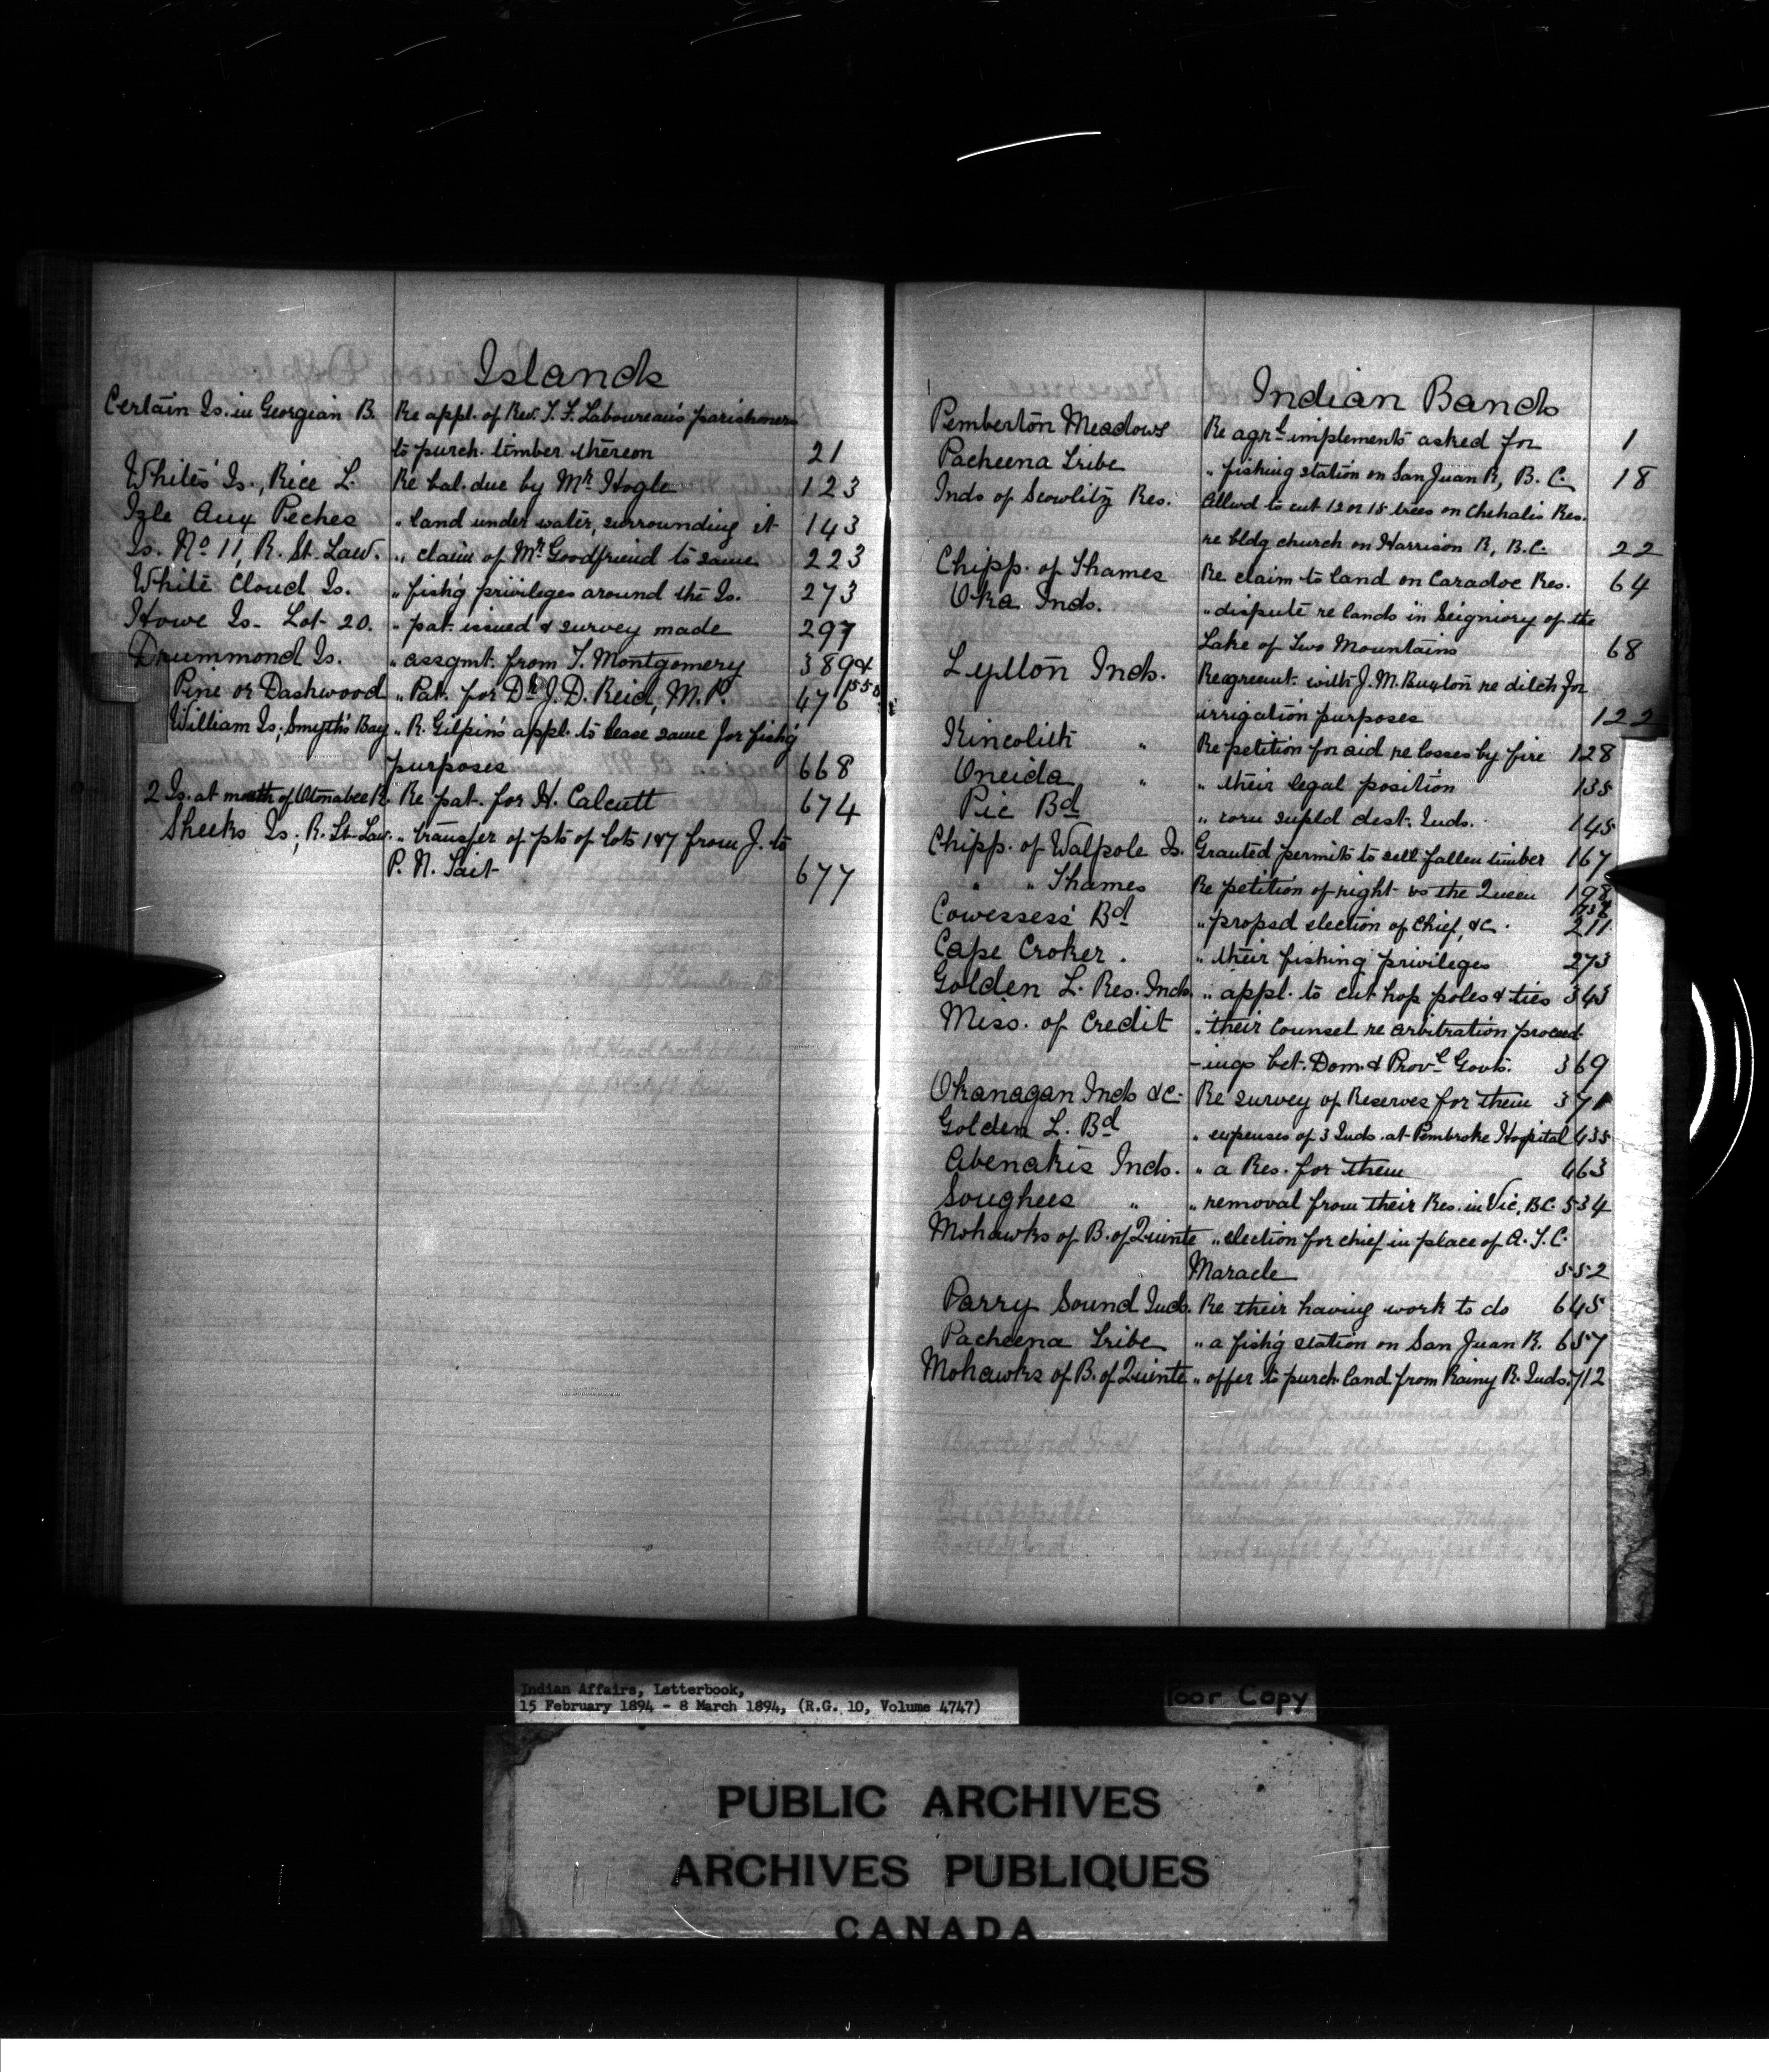 Islands
Certain Is. in Georgian B. Re appl. of Rev. T. F. Laboureau's parishioners
to purch. timber thereon 21
White's Is., Rice L. Re bal. due by Mr Hogle 123
Isle Aux Peches " land under water, surrounding it 143
Is. No 11, R. St. Law. " claim of Mr Goodfriend to same 223
White Cloud Is. " fish'g privileges around the Is. 273
Howe Is. Lot 20. " pat. issued & survey made 297
Drummond Is. " assgmt. from T. Montgomery 389
Pine or Dashwood " Pat. for Dr J. D. Reid, M.P. 476 550
William Is; Smyth's Bay " R. Gilpin's appl. to lease same for fish'g
purposes 668
2 Is. at mouth of Otonabee R. Re pat. for H. Calcutt 674
Sheeks Is; R. St. Law. " transfer of pts of lots 1 & 7 from J. to
P. N. Tait 677
Indian Bands
Pemberton Meadows Re agrl implements asked for 1
Pacheena Tribe " fishing station on San Juan R, B.C. 18
Inds of Scowlitz Res. Allwd to cut 12 or 15 trees on Chehalis Res.
re bldg church on Harrison R, B.C. 22
Chipp. of Thames Re claim to land on Caradoc Res. 64
Oka Inds. " dispute re lands in Seigniory of the
Lake of Two Mountains 68
Lytton Inds. Re agreemt. with J. M. Buxton re ditch for
irrigation purposes 122
Kincolith " Re petition for aid re losses by fire 128
Oneida " " their legal position 135
Pic Bd " corn supld dest. Inds. 145
Chipp. of Walpole Is. Granted permits to sell fallen timber 167
" " Thames Re petition of right vs the Queen 198
Cowessess' Bd " propsd election of Chief, &c. 211
Cape Croker. " their fishing privileges 273
Golden L. Res. Inds. " appl. to cut hop poles & ties 343
Miss. of Credit " their Counsel re arbitration proceed-
-ings bet. Dom. & Provl Govts. 369
Okanagan Inds &c. Re survey of Reserves for them 371
Golden L. Bd " expenses of 3 Inds. at Pembroke Hospital 435
Abenakis Inds. " a Res. for them 463
Songhees " " removal from their Res. in Vic, B.C. 534
Mohawks of B. of Quinte " election for chief in place of A. T. C.
Maracle 552
Parry Sound Inds. Re their having work to do 645
Pacheena Tribe " a fish'g station on San Juan R. 657
Mohawks of B. of Quinte " offer to purch. land from Rainy R. Inds. 712
Indian Affairs, Letterbook,
15 February 1894 - 8 March 1894, (R.G. 10, Volume 4747)
Poor Copy
PUBLIC ARCHIVES
ARCHIVES PUBLIQUES
CANADA